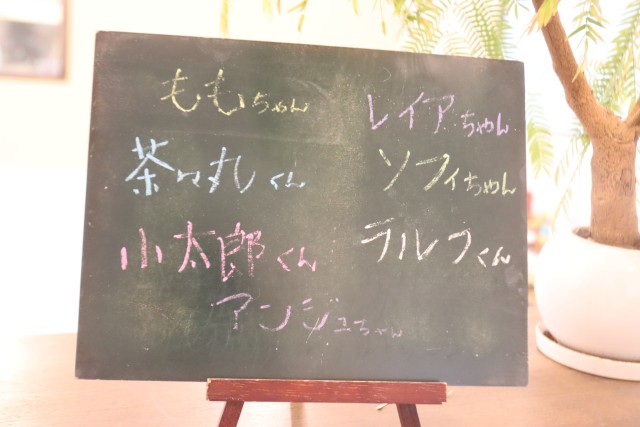 ももちゃん
レイアちゃん
茶々丸くん
ソフィちゃん
小太郎くん
ラルフくん
アンジュちゃん